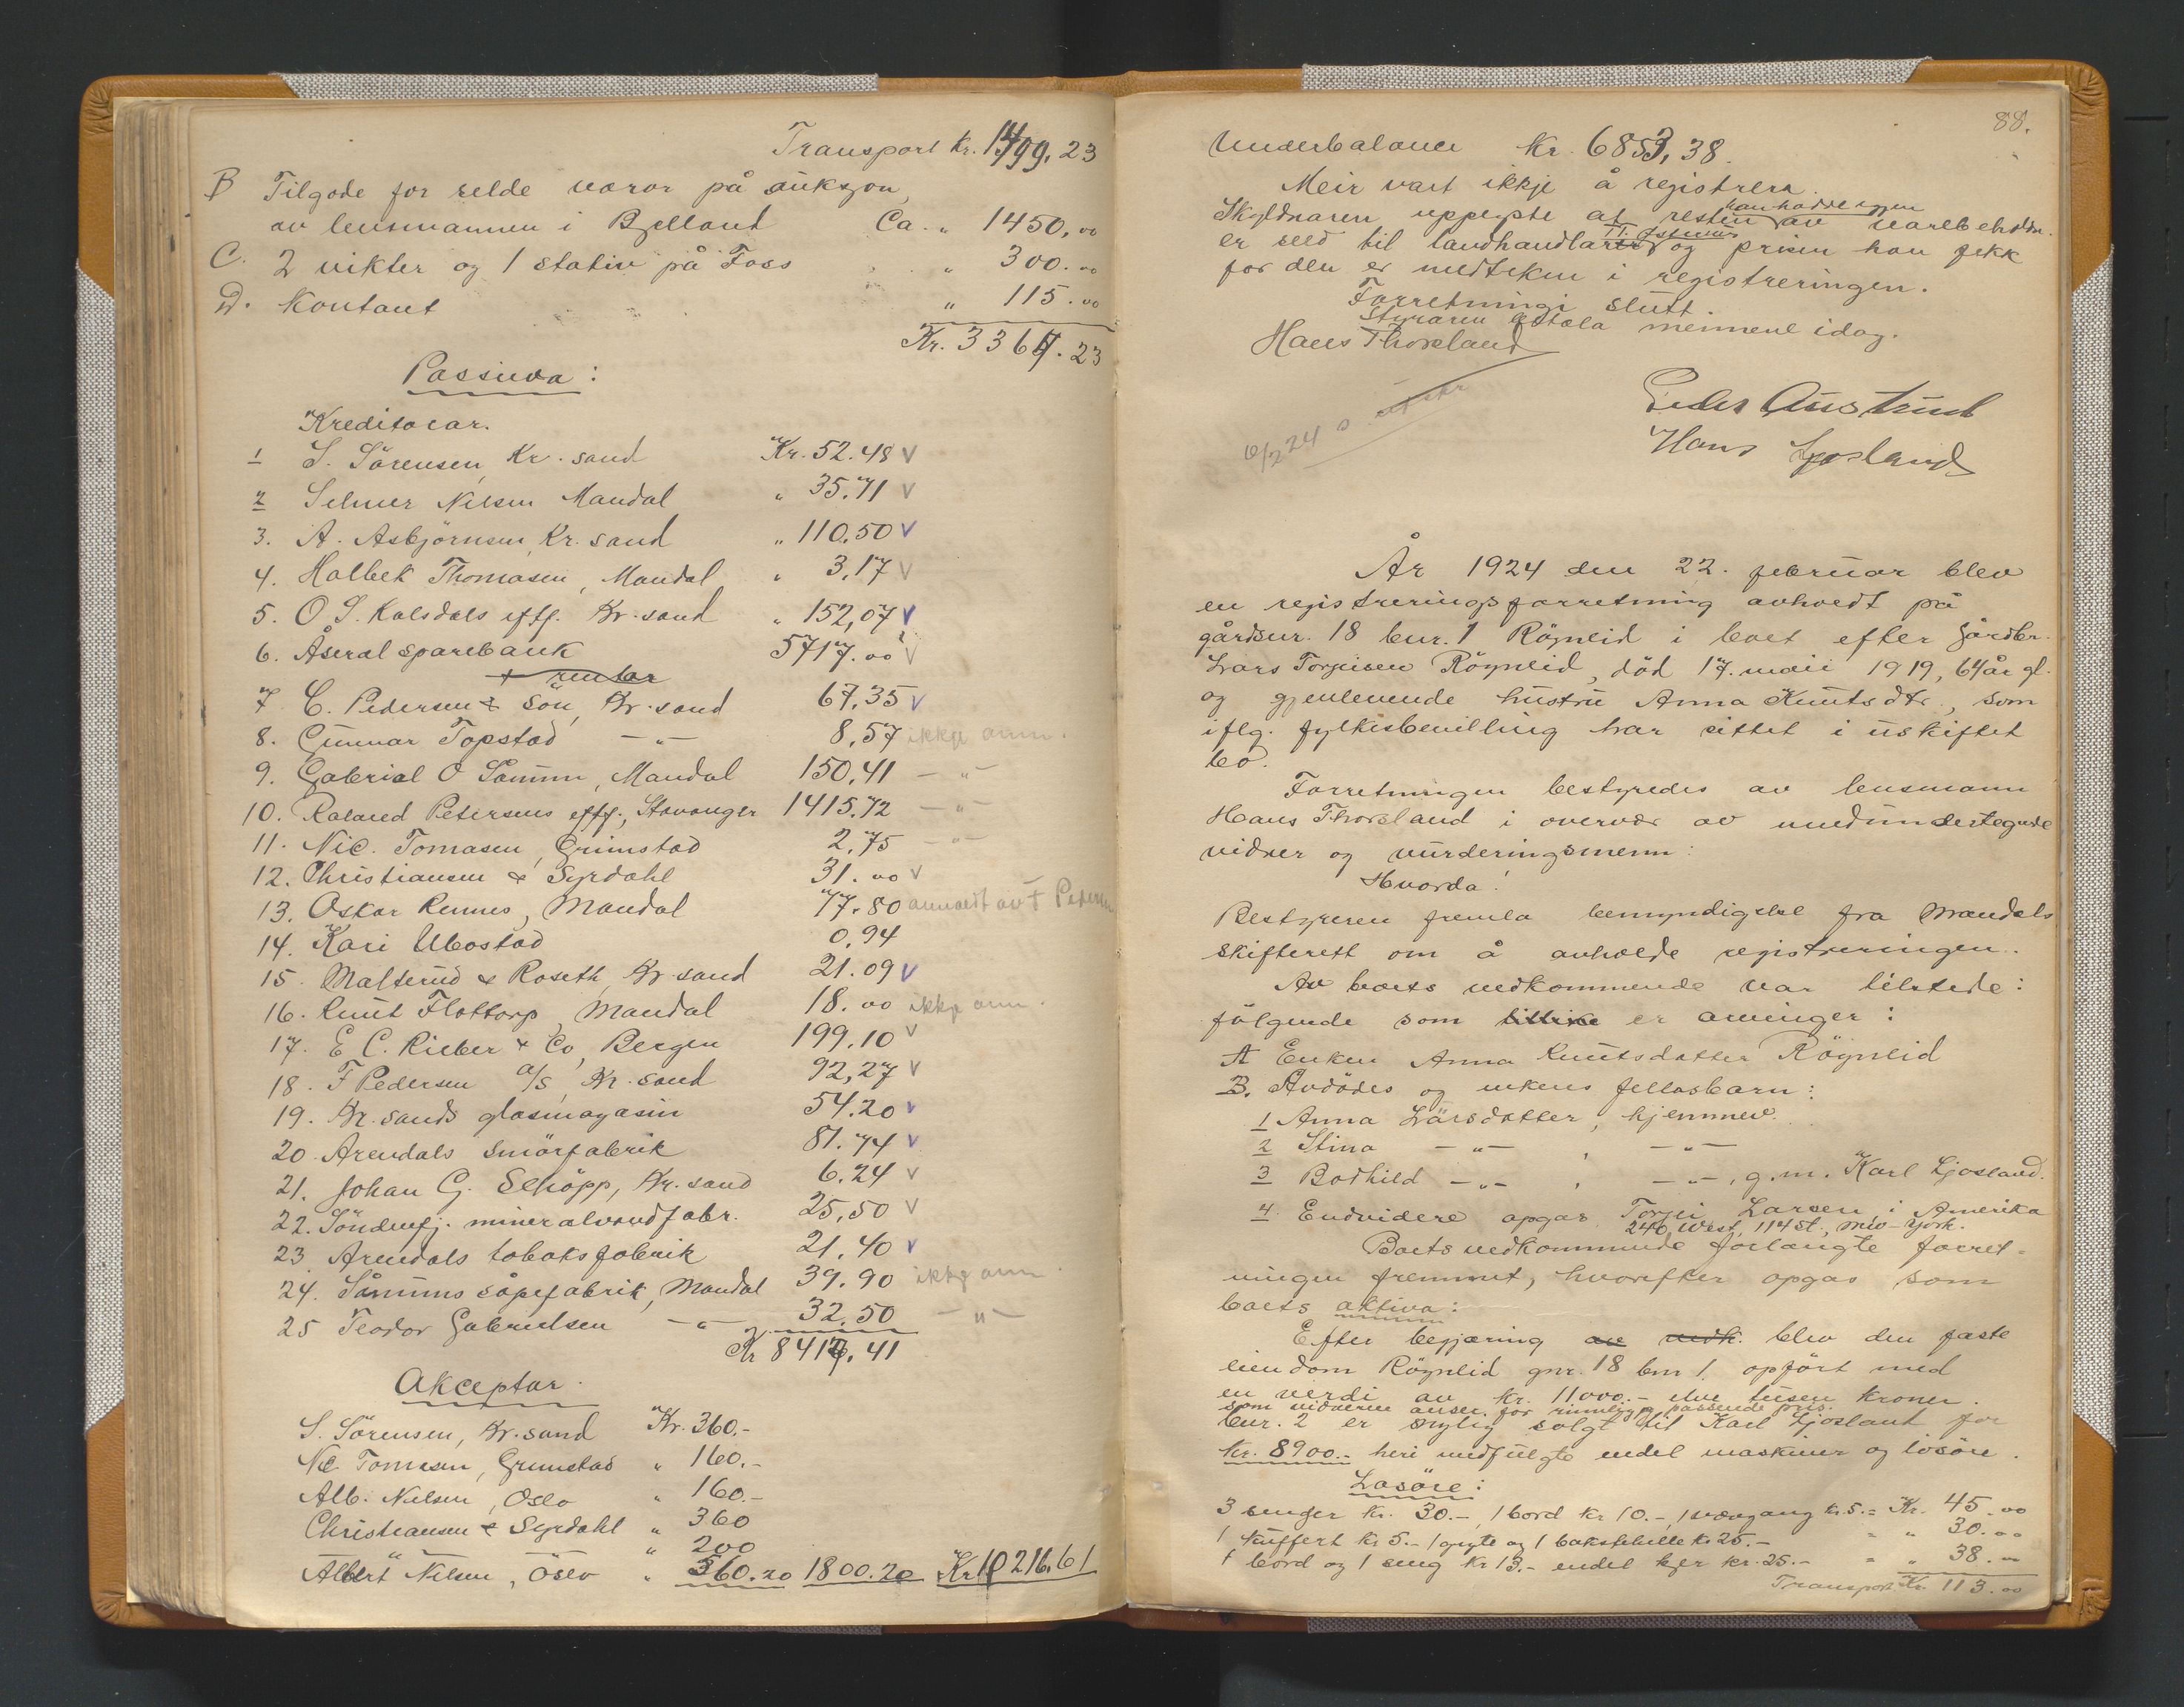 Transport Kr. 1499.23
B Tilgode for selde varor på auksjon
av lensmannen i Bjelland Ca. " 1450,00
C. 2 vikter og 1 stativ på Foss " 300.00
D. Kontant " 115.00
Kr. 3364.23
Passiva:
Kreditorar.
1 S. Sörensen, Kr.sand Kr. 52.48 v
2 Selmer Nilsen Mandal " 35.71 v
3. A. Asbjörnsen, Kr.sand " 110,50 v
4. Holbek Thomasen, Mandal " 3,17 v
5. O. S. Kalsdals eftf. Kr.sand " 152,07 v
6. Åseral sparebank 5717.00 v
+ renter
7 C. Pedersen & Sön, Kr.sand 67,35 v
8. Gunnar Topstad —"— 8,57 ikkje anm.
9. Gabriel O Sånum, Mandal 150,41 —"—
10. Roland Petersens eftf., Stavanger 1415.72 —"—
11. Nic. Tomasen, Grimstad 2,75 —"—
12. Christiansen & Syrdahl 31.00 v
13. Oskar Rennes, Mandal 77.80 anmeldt av F Pedersen
14. Kari Ubostad 0,94
15. Malterud & Roseth, Kr.sand 21.09 v
16. Knut Flottorp, Mandal 18.00 ikkje anm.
17. E C. Rieber & Co, Bergen 199,10 v
18. F Pedersen A/S, Kr.sand 92,27 v
19. Kr.sands glasmagasin 54.20 v
20. Arendals smörfabrik 81.74 v
21. Johan G. Schöpp, Kr.sand 6.24 v
22. Söndenfj. mineralvandfabr. 25,50 v
23. Arendals tobaksfabrik 21.40 v
24. Sånums såpefabrik, Mandal 39.90 ikkje anm.
25 Teodor Gabrielsen —"— 32.50 —"—
Kr 8416,41
Akceptar.
S. Sörensen, Kr.sand Kr. 360.-
Nic. Tomasen, Grimstad " 160.-
Alb. Nilsen, Oslo " 160.-
Christiansen & Syrdahl " 360
" 200
Albert Nilsen, Oslo " 560.20 1800.20 Kr 10216.61
88.
Underbalance Kr. 6853,38.
Meir vart ikkje å registrera.
Skyldnaren uppgyste at resten han hadde igjen av varebeholdn.
er seld til landhandlar og prisen han fekk
for den er medteken i registreringen.
Forretningi slutt.
Styraren betala mennene idag.
Hans Thorsland
Peder Austrud
Hans Ljosland
År 1924 den 22. februar blev
en registreringsforretning avholdt på
gårdsnr. 18 bnr. 1 Röynlid i boet efter gårdbr.
Lars Torjeisen Röynlid, död 17. mai 1919, 64 år gl.
og gjenlevende hustru Anna Knutsdtr., som
iflg. fylkisbevilling har sittet i uskiftet
bo.
Forretningen bestyredes av lensmann
Hans Thorsland i overvær av medundertegnede
vidner og vurderingsmenn:
Hvorda!
Bestyreren fremla bemyndigelse fra Mandals
skifterett om å avholde registreringen.
Av boets vedkommende var tilstede:
fölgende som tillike er arvinger:
A Enken Anna Knutsdatter Röynlid
B. Avdödes og enkens fellasbarn:
1 Anna Larsdatter, hjemmev.
2 Stina —"—, —"—
3 Bodhild —"—, —"—, g.m. Karl Ljosland.
4. Endvidere opgas Torjei Larsen i Amerika
240 West, 114 St., New-York.
Boets vedkommende forlangte forret-
ningen fremmet, hvorefter opgas som
boets aktiva:
Efter begjæring av vedk. blev den faste
eiendom Röynlid gnr. 18 bnr 1. opfört med
en verdi av kr. 11000.- elve tusen kroner.
som vidnerne anser for rimelig og passende pris.
bnr. 2 er nylig solgt til Karl Ljosland for
kr. 8900.- heri medfulgte endel maskiner og lösöre.
Lösöre:
3 senger kr. 30.-, 1 bord kr 10.-, 1 kr 5.- = Kr. 45.00
1 kuffert kr 5.- 1 gryte og 1 kr 25.- = " 30.00
1 bord og 1 seng kr 13.- endel kjer kr. 25.- = " 38.00
Transport Kr. 113.00